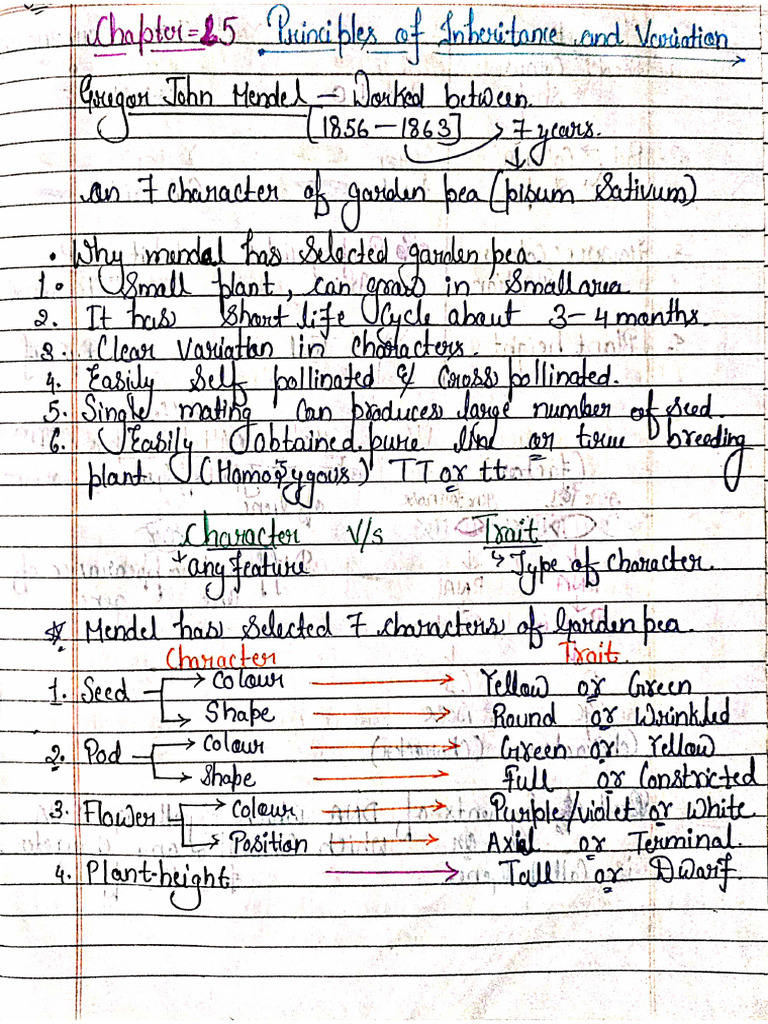 Chapter=5 Principles of Inheritance and Variation
Gregor John Mendel – Worked between
[1856 – 1863] → 7 years.
on 7 character of garden pea (pisum Sativum)
• Why mendel has selected garden pea.
1. Small plant, can grow in small area
2. It has short life cycle about 3-4 months.
3. Clear variation in characters.
4. Easily self pollinated & cross pollinated.
5. Single mating can produces large number of seed.
6. Easily obtained pure line or true breeding
plant (Homozygous) TT or tt
Character V/s Trait
→ any feature ↳ Type of character.
* Mendel has selected 7 characters of Garden pea.
Character Trait
1. Seed → Colour → Yellow or Green
↳ Shape → Round or Wrinkled
2. Pod → Colour → Green or Yellow
↳ Shape → Full or Constricted
3. Flower → Colour → Purple/violet or White
↳ Position → Axial or Terminal.
4. Plant-height → Tall or Dwarf.